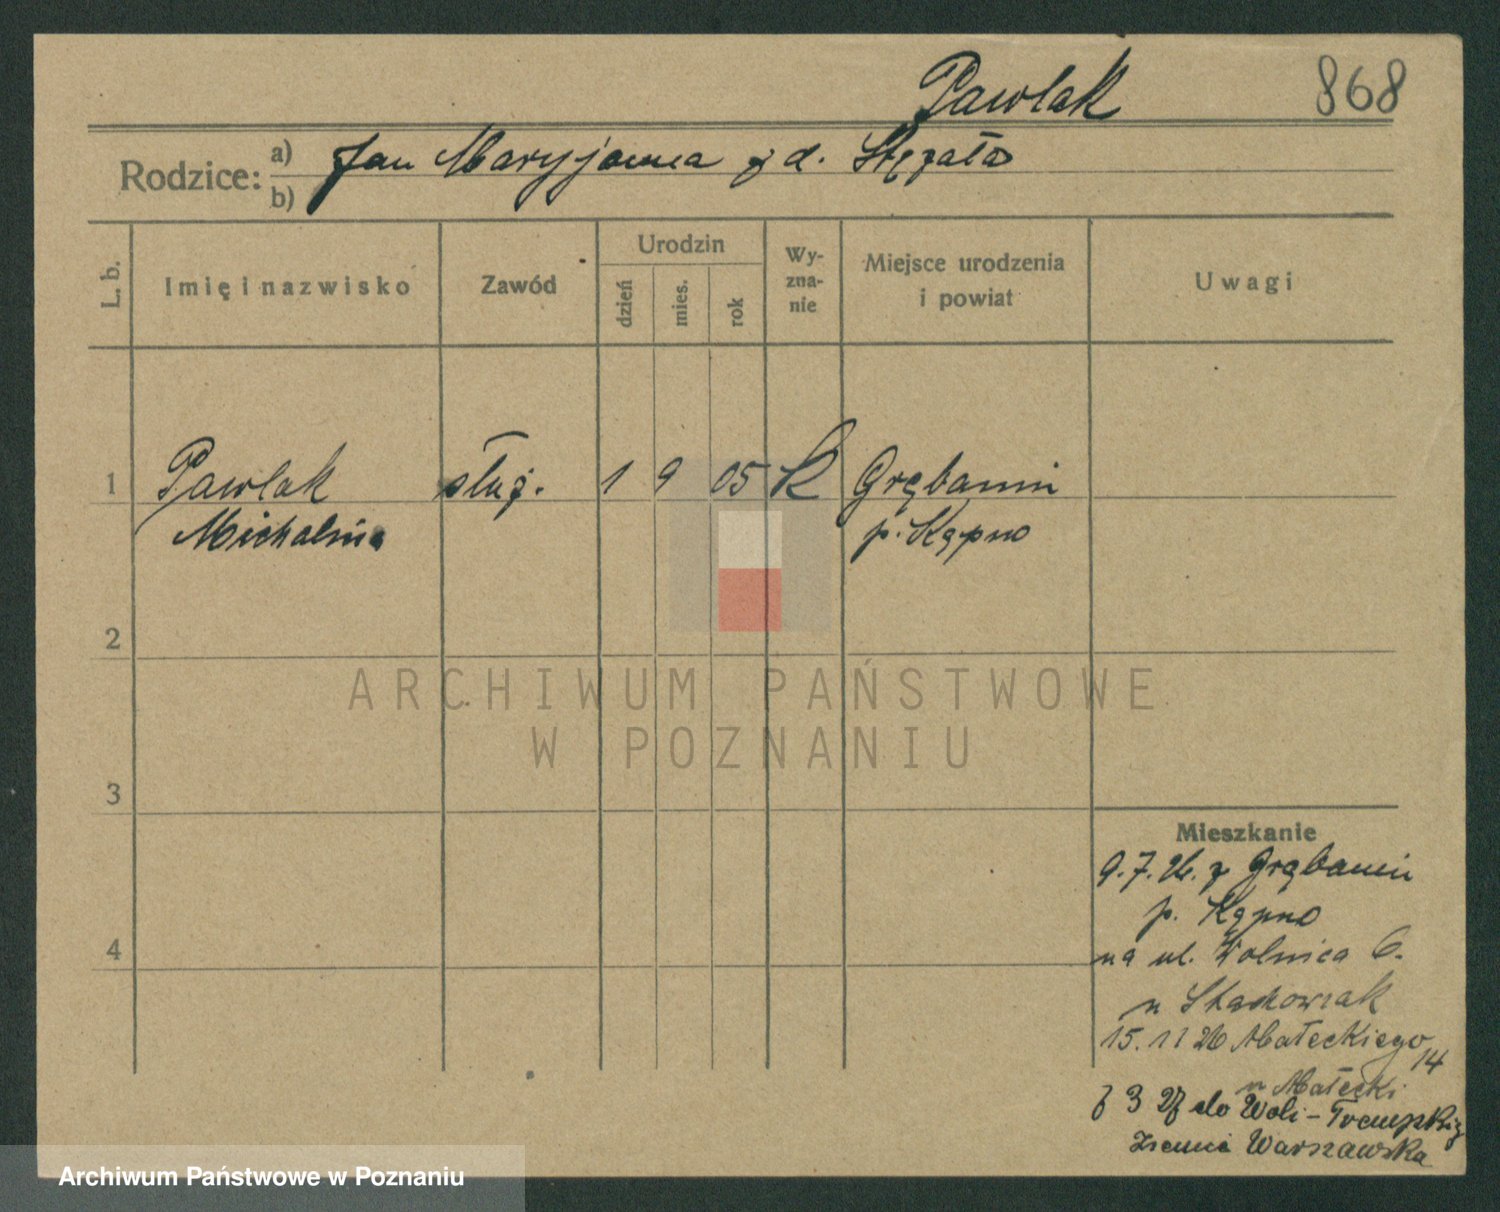 Pawlak 868
Rodzice: a) Jan Maryjanna z d. Stęzała
b)
L. b. Imię i nazwisko Zawód Urodzin dzień mies. rok Wyznanie Miejsce urodzenia i powiat Uwagi
1 Pawlak służ. 1 9 05 K Grębanin
Michalina p. Kępno
2
ARCHIWUM PAŃSTWOWE
W POZNANIU
3
Mieszkanie
9.7.26. z Grębanin
p. Kępno
4
na ul. Wolnica 6.
u Stachowiak
15.11 26 Małeckiego 14
u Małecki
3 27 do Woli-
Ziemia Warszawska
Archiwum Państwowe w Poznaniu